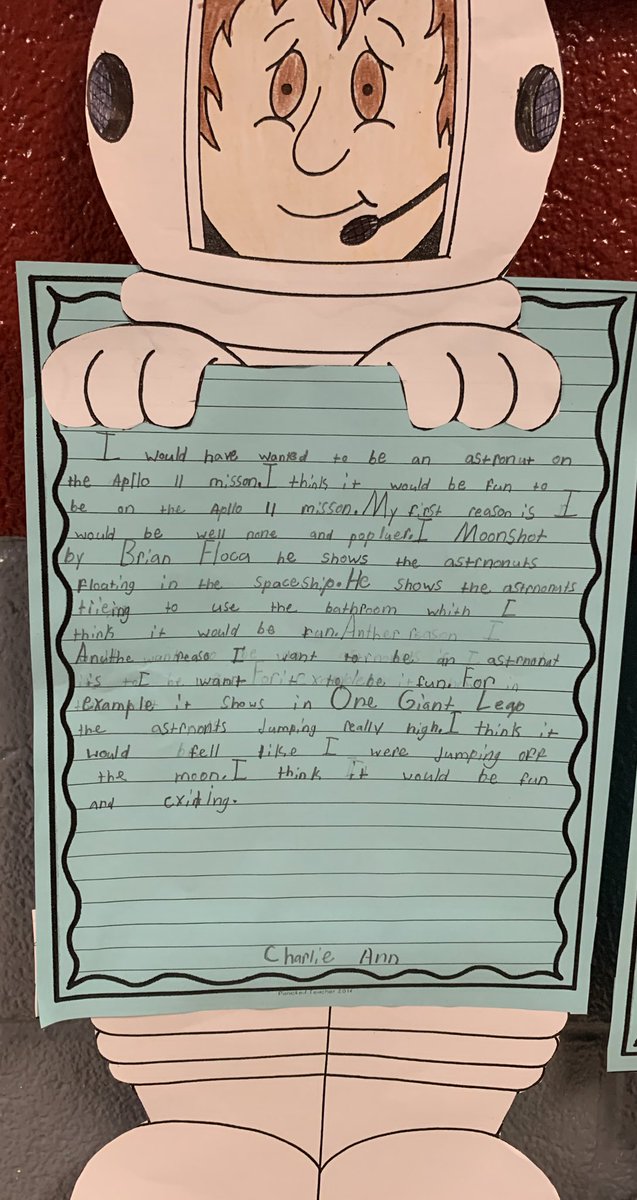 I would have wanted to be an astronut on
the Apllo 11 misson. I think it would be fun to
be on the Apllo 11 misson. My first reason is I
would be well none and popluer. I Moonshot
by Brian Floca he shows the astrnonuts
floating in the spaceship. He shows the astrnonuts
triieing to use the bathroom which I
think it would be fun. Anther reason I
Anuthe reaso I want to be an astrnonut
is I want it to be fun. For
example it shows in One Giant Leap
the astrnonts Jumping really high. I think it
would fell like I were Jumping off
the moon. I think it would be fun
and exiting.
Charlie Ann